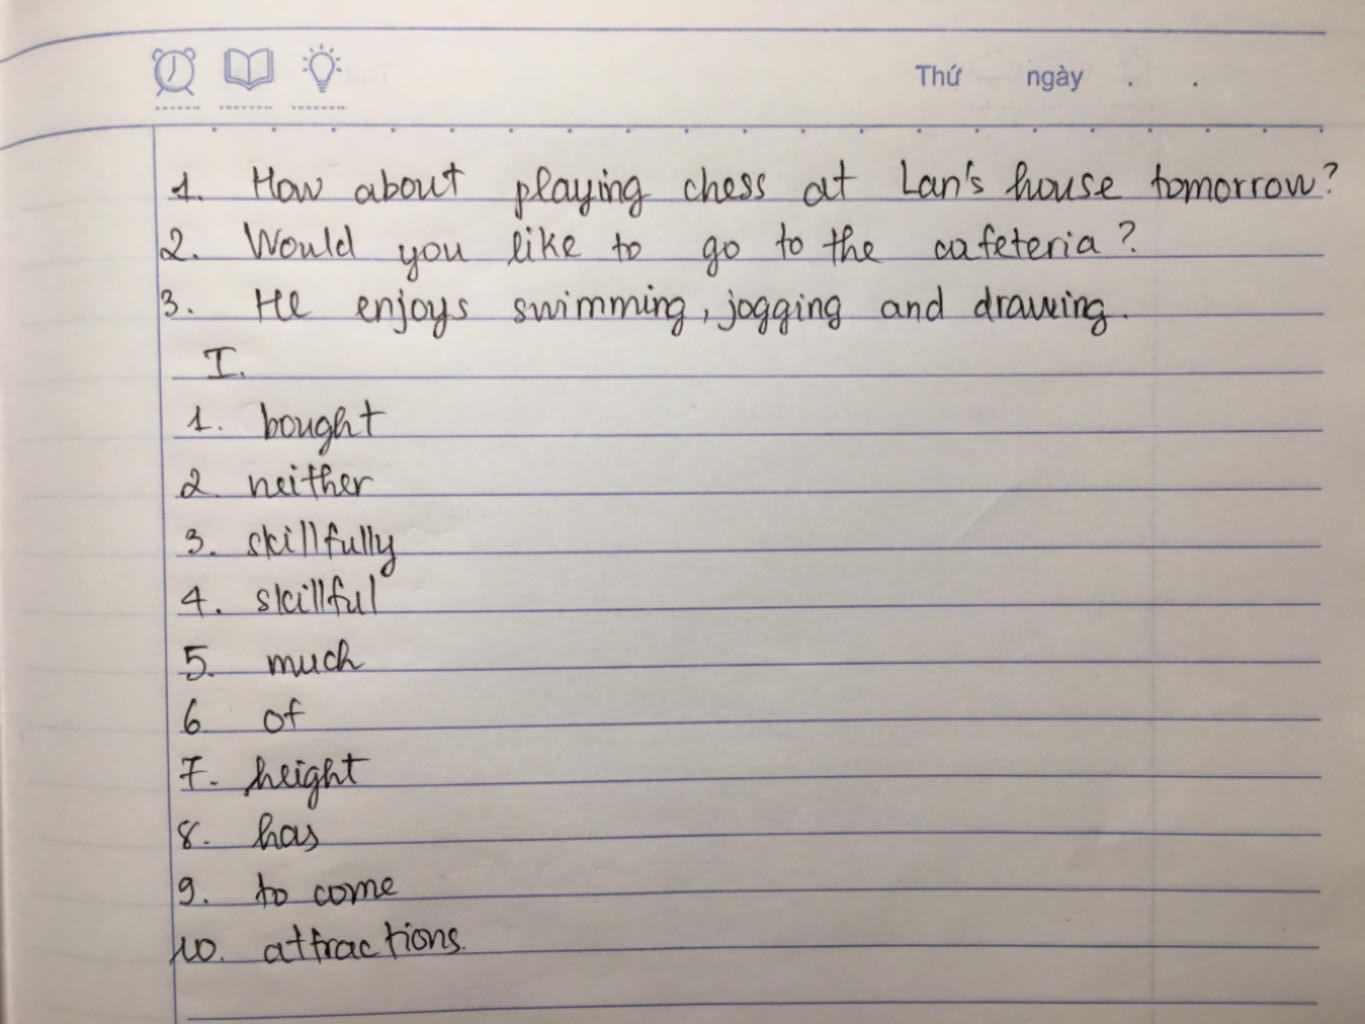 Thứ ngày . .
1. How about playing chess at Lan's house tomorrow?
2. Would you like to go to the cafeteria?
3. He enjoys swimming, jogging and drawing.
I.
1. bought
2. neither
3. skillfully
4. skillful
5. much
6 of
7. height
8. has
9. to come
10. attractions.